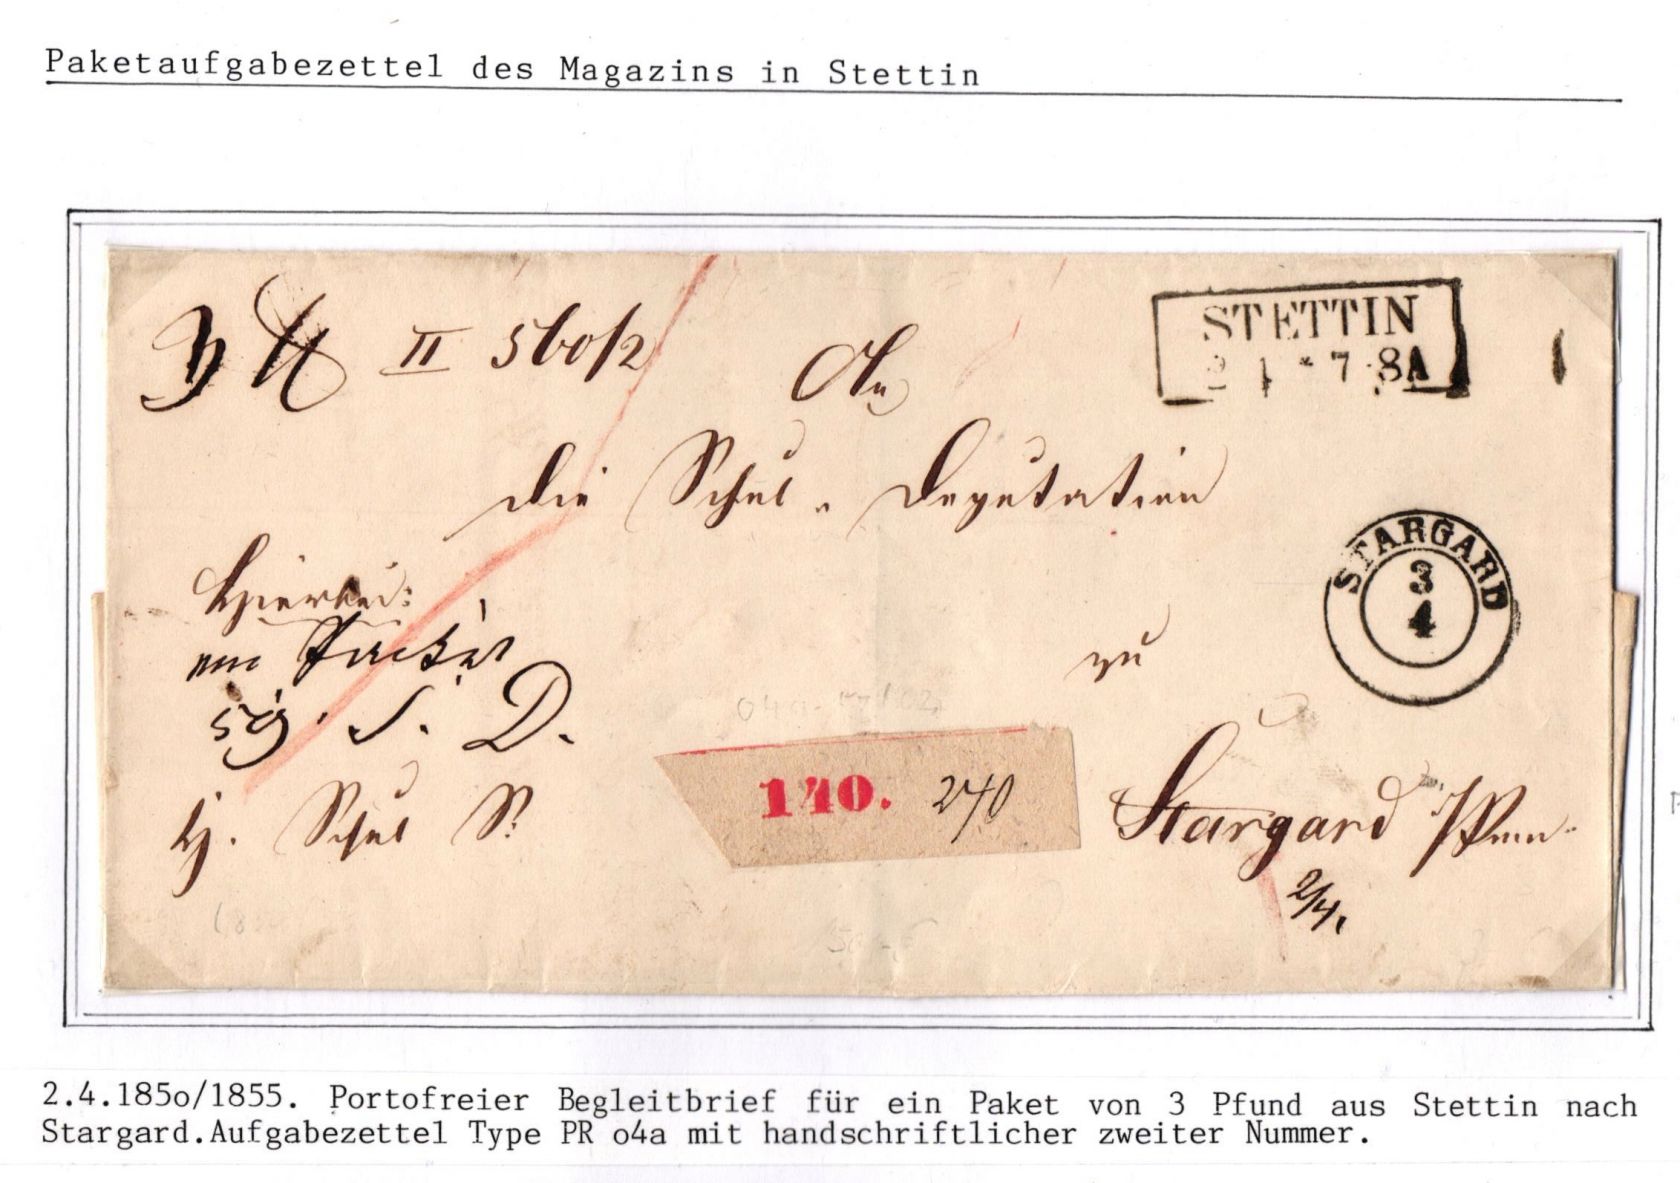 Paketaufgabezettel des Magazins in Stettin
II 560/2
An
STETTIN
2 4 * 7-8A
die Schul-Deputation
STARGARD
3
4
Hierbei:
ein Packet
sig. S. D.
zu
H. Schul S.
140. 240
Stargard /Pom.
2/4.
2.4.185o/1855. Portofreier Begleitbrief für ein Paket von 3 Pfund aus Stettin nach
Stargard.Aufgabezettel Type PR o4a mit handschriftlicher zweiter Nummer.